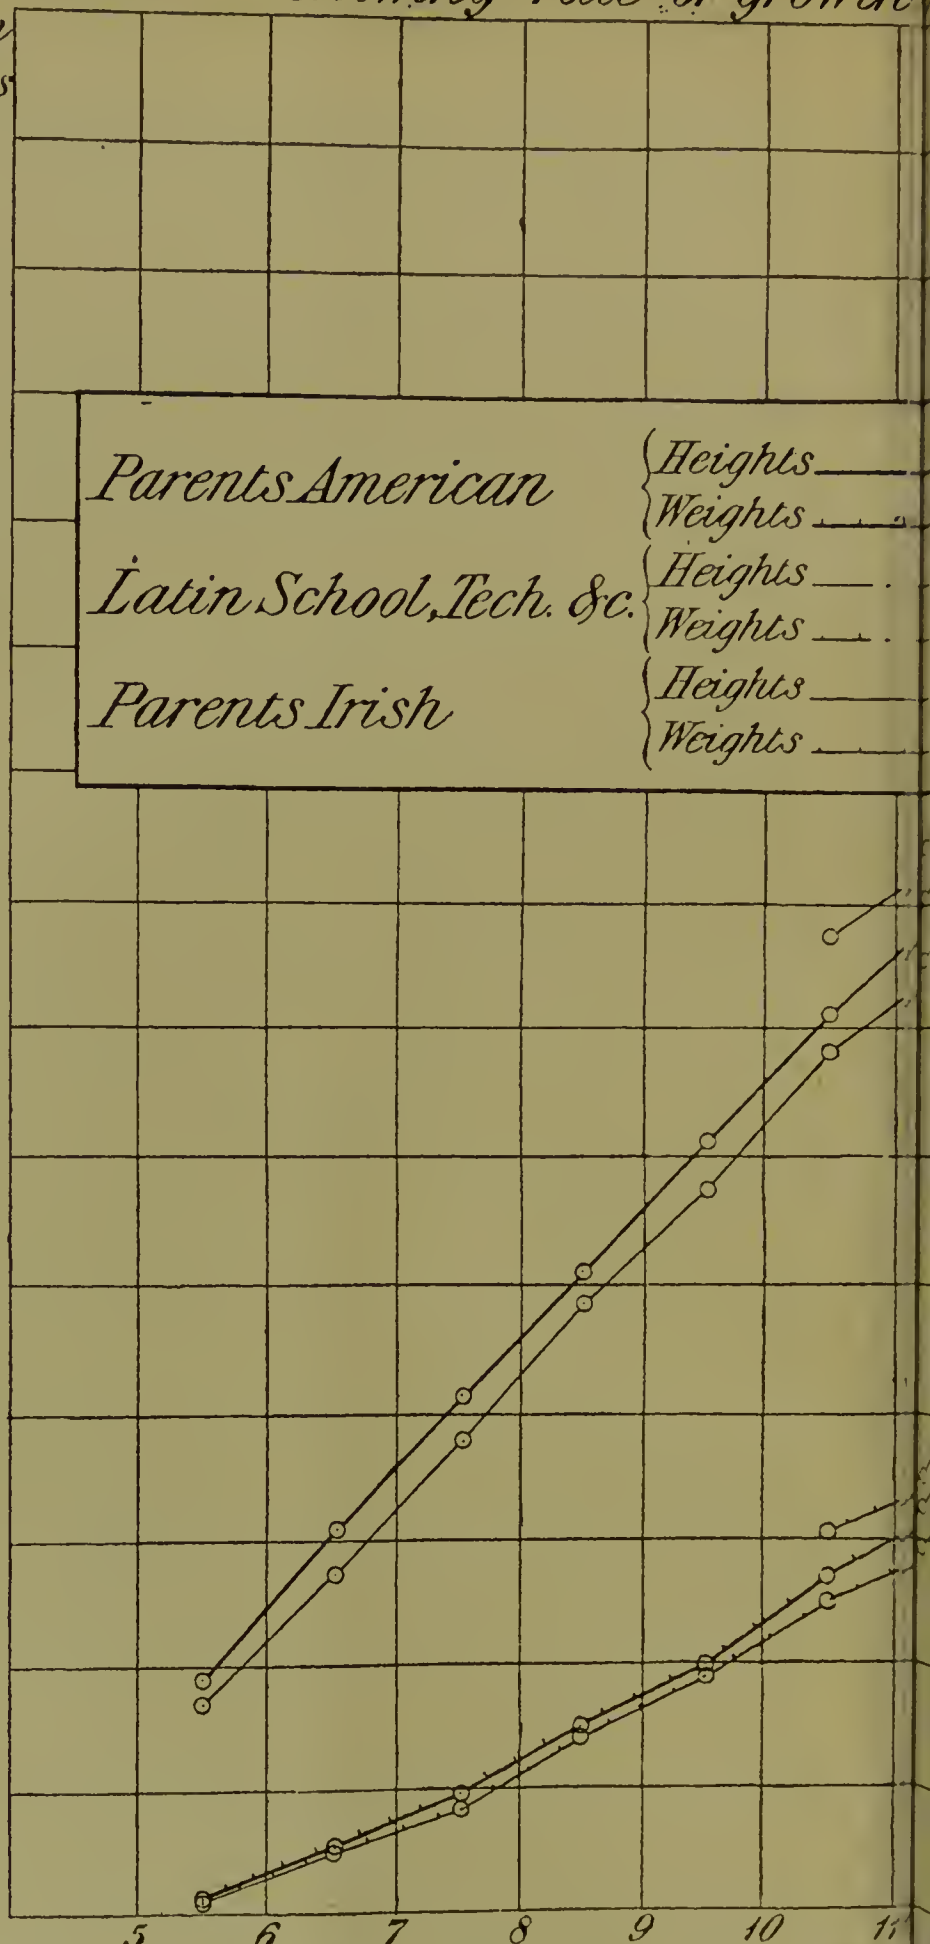 rate of growth
Parents American
Heights
Weights
Latin School, Tech. &c.
Heights
Weights
Parents Irish
Heights
Weights
5 6 7 8 9 10 11